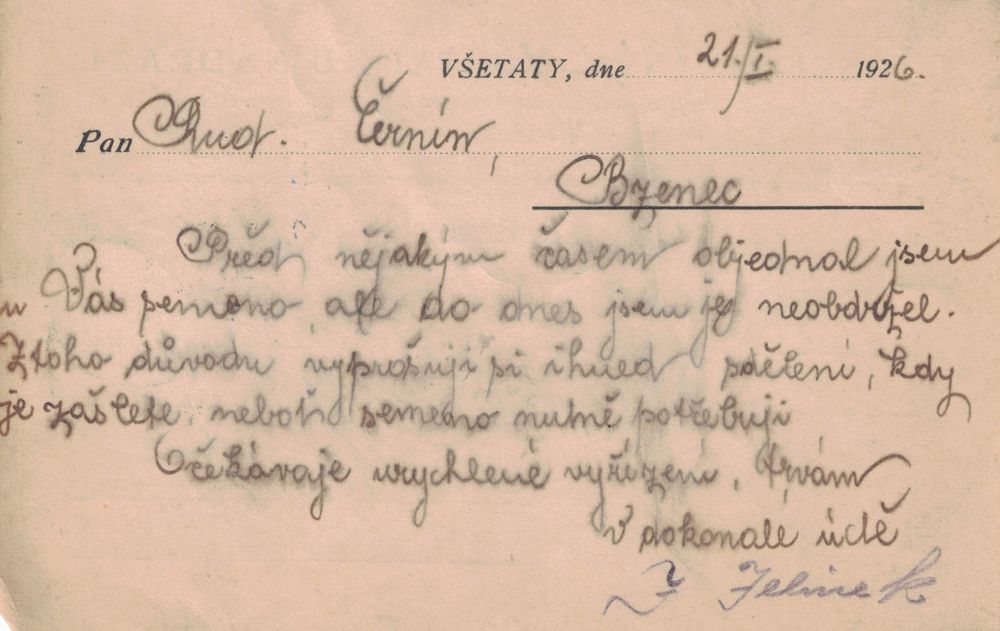 VŠETATY, dne 21./I. 1926.
Pan Rud. Černín,
Bzenec
Před nějakým časem objednal jsem
u Vás semeno, ale do dnes jsem je neobdržel.
Z toho důvodu vyprošuji si ihned sdělení, kdy
je zašlete, neboť semeno nutně potřebuji
Očekávaje urychlené vyřízení, trvám
v dokonalé úctě
Jelinek